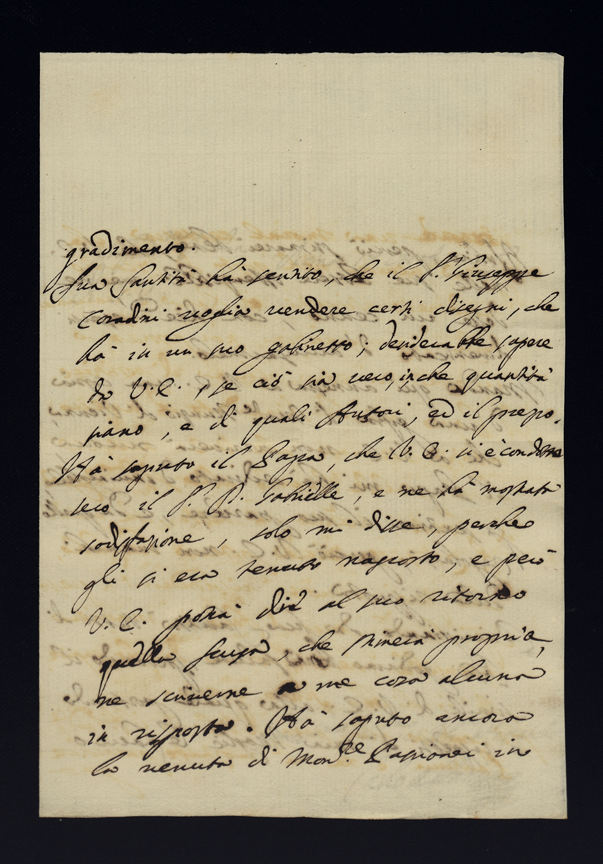 gradimento.
Sua Santità hà sentito, che il S. Giuseppe
Coradini voglia vendere certi disegni, che
hà in un suo gabinetto; desiderarebbe sapere
da V. E., se ciò sia vero, in che quantità
siano, e di quali Autori, ed il prezzo.
Hà saputo il Papa, che V. E. si è condotto
seco il P. D. Gabrielle, e ne hà mostrato
sodisfazione, solo mi disse, perche
gli si era tenuto nascosto, e però
V. E. potrà dire al suo ritorno
quella scusa, che stimerà propria,
ne scriverne a me cosa alcuna
in risposta. Hà saputo ancora
la venuta di Mon.re Passionei in